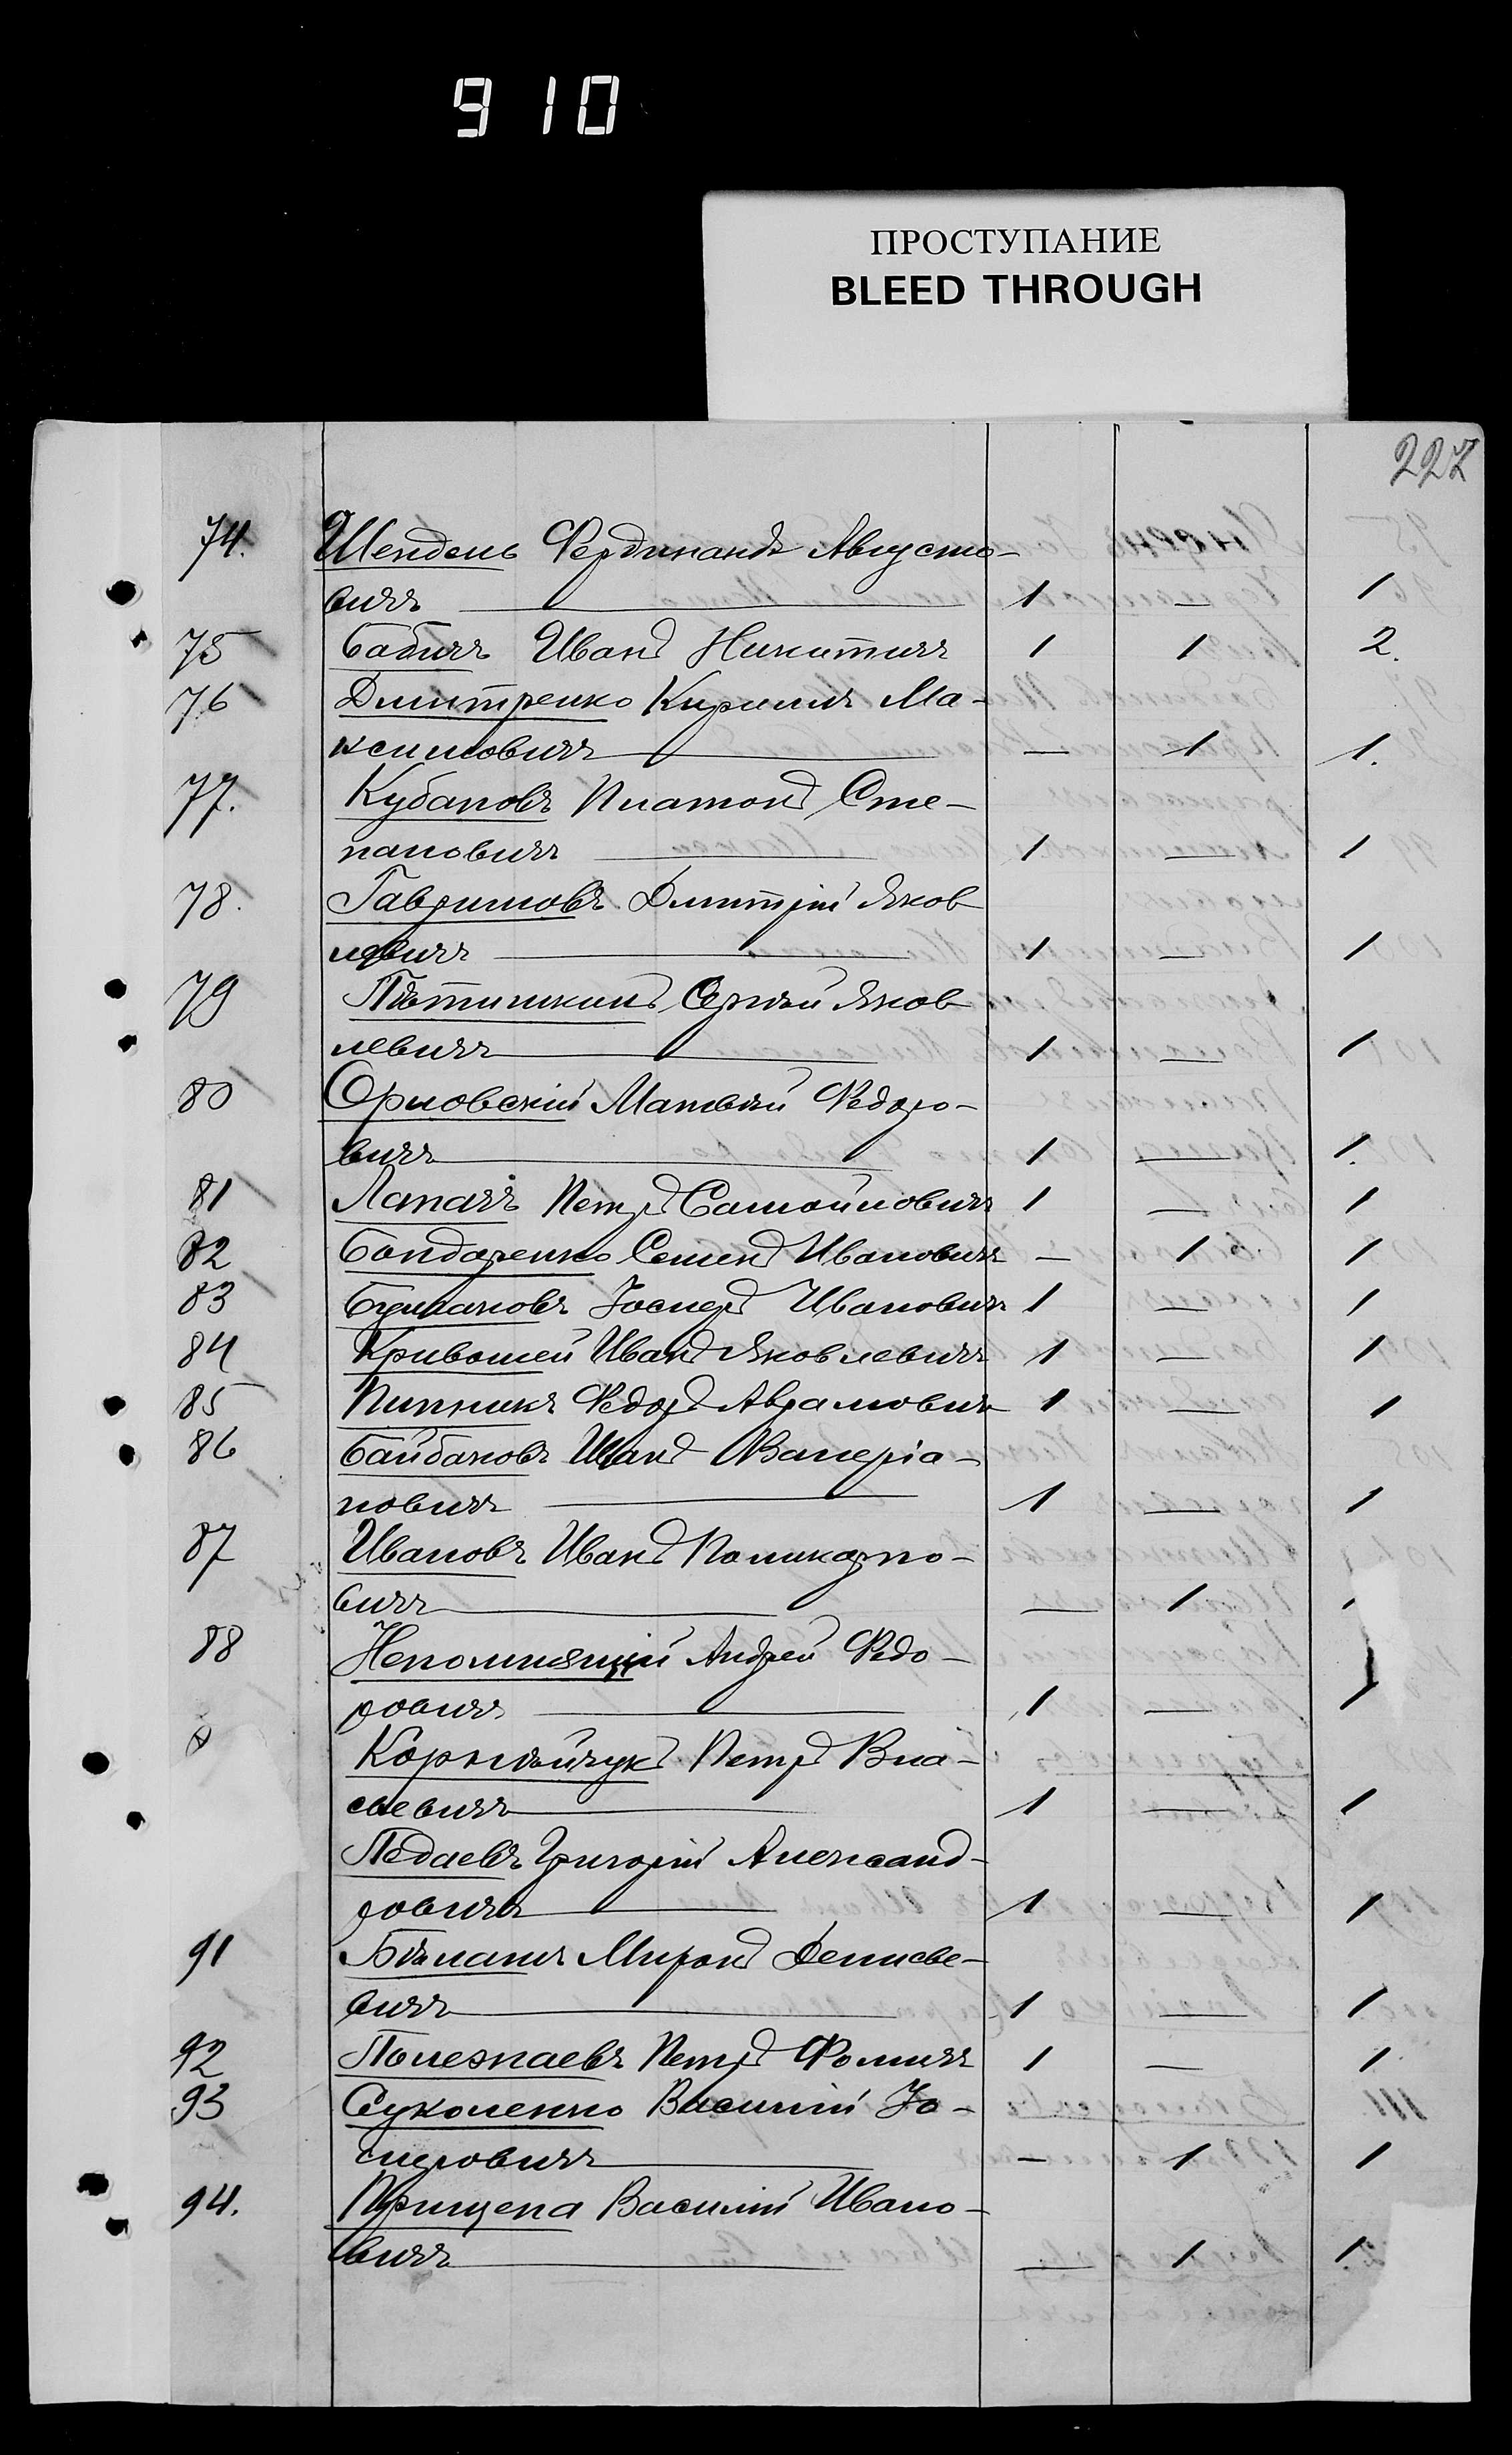 910
ПРОСТУПАНИЕ
BLEED THROUGH
227
74. Шендель Фердинандъ Августо-
вичъ — 1 — 1
75 Бабичъ Иванъ Никитичъ 1 1 2.
76 Дмитренко Кириллъ Ма-
ксимовичъ — — 1 1.
77. Кубановъ Платонъ Сте-
пановичъ — 1 — 1
78. Гавриловъ Дмитрій Яков
левичъ — 1 — 1
79 Пѣтишкинъ Сергѣй Яков
левичъ — 1 — 1
80 Орловскій Матвѣй Федоро-
вичъ — 1 — 1.
81 Лапачъ Петръ Самойловичъ 1 — 1
82 Бондаренко Семенъ Ивановичъ — 1 1
83 Булкановъ Іосифъ Ивановичъ 1 — 1
84 Кривошей Иванъ Яковлевичъ 1 — 1
85 Пипникъ Федоръ Аврамовичъ 1 — 1
86 Байбаковъ Иванъ Валеріа-
новичъ — 1 — 1
87 Ивановъ Иванъ Поликарпо-
вичъ — — 1
88 Непомнящій Андрей Федо-
ровичъ — 1 — 1
Корнѣйчукъ Петръ Вла-
сьевичъ — 1 — 1
Педаевъ Григорій Александ-
ровичъ — 1 — 1
91 Бѣлашъ Миронъ Денисье-
вичъ — 1 — 1
92 Полежаевъ Петръ Фомичъ 1 — 1
93 Суколенко Василій Іо-
сифовичъ — — 1 1
94. Прищепа Василій Ивано-
вичъ — — 1 1